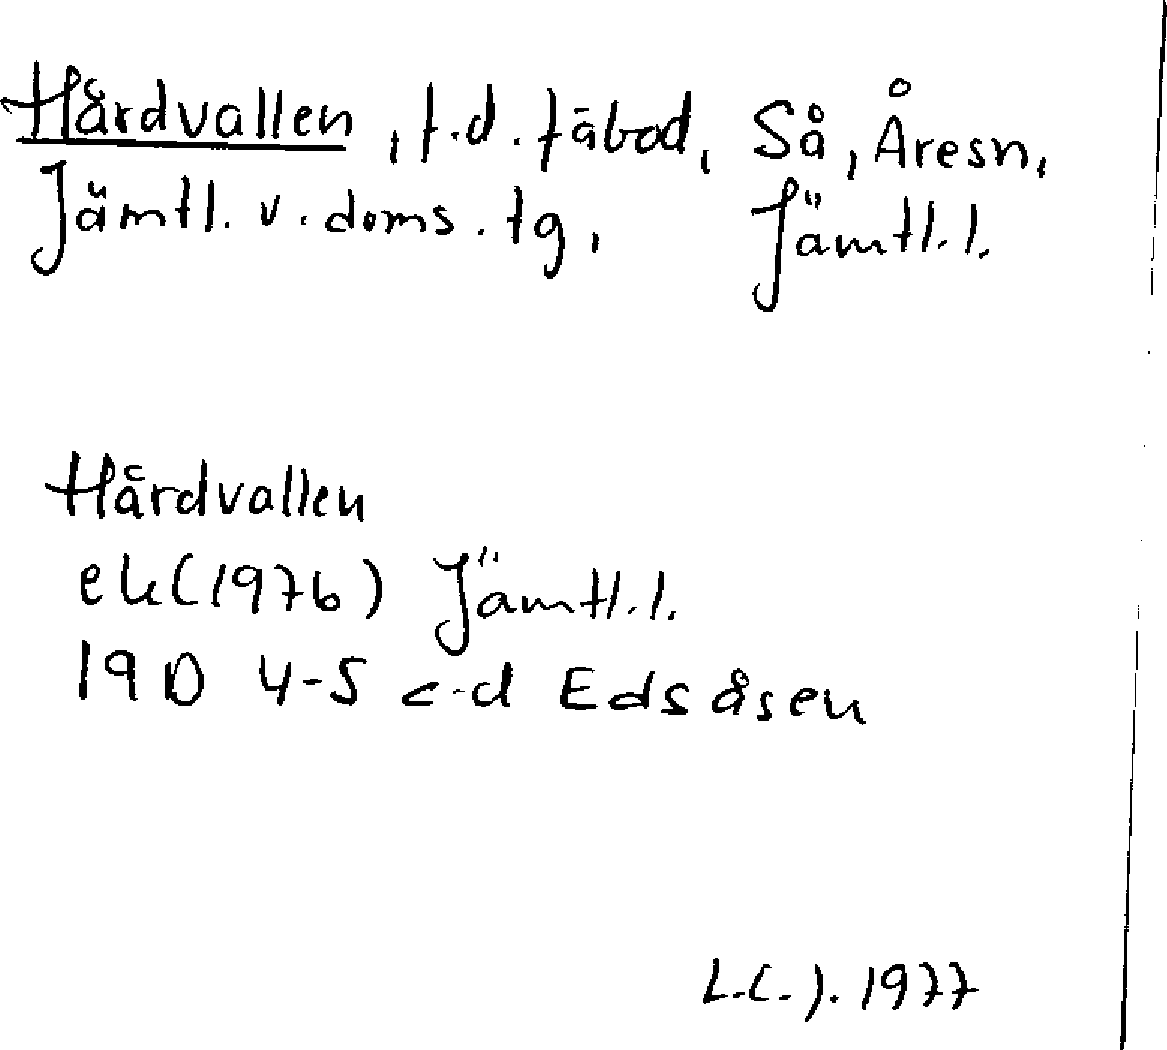 Hårdvallen, f.d. fäbod, Så, Åresn,
Jämtl. v. doms. tg, Jämtl. l.
Hårdvallen
ek (1976) Jämtl. l.
19D 4-5 c-d Edsåsen
L.C.J. 1977